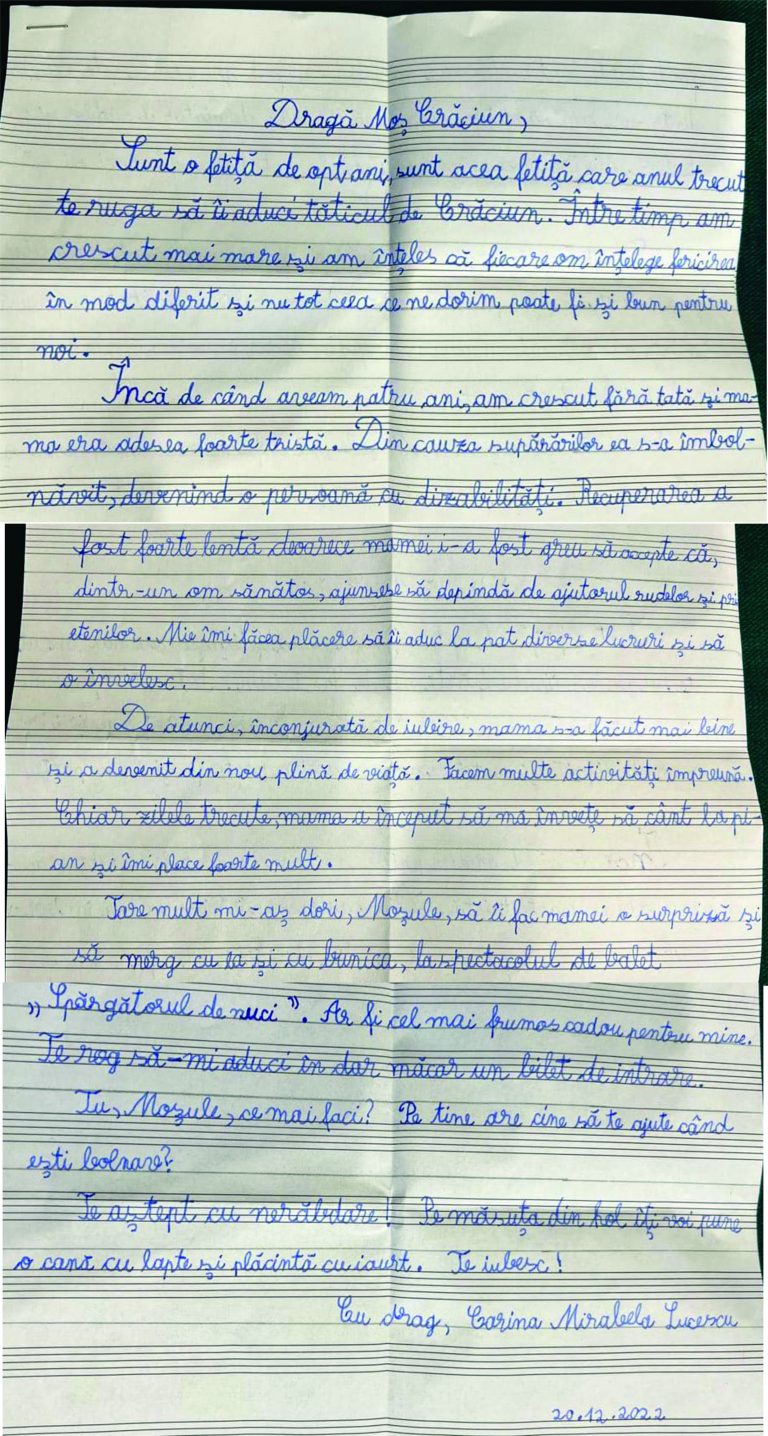 Dragă Moș Crăciun,
Sunt o fetiță de opt ani, sunt acea fetiță care anul trecut
te ruga să îi aduci tăticul de Crăciun. Între timp am
crescut mai mare și am înțeles că fiecare om înțelege fericirea
în mod diferit și nu tot ceea ce ne dorim poate fi și bun pentru
noi.
Încă de când aveam patru ani, am crescut fără tată și ma-
ma era adesea foarte tristă. Din cauza supărărilor ea s-a îmbol-
năvit, devenind o persoană cu dizabilități. Recuperarea a
fost foarte lentă deoarece mamei i-a fost greu să accepte că,
dintr-un om sănătos, ajunsese să depindă de ajutorul rudelor și pri
etenilor. Mie îmi făcea plăcere să îi aduc la pat diverse lucruri și să
o învelesc.
De atunci, înconjurată de iubire, mama s-a făcut mai bine
și a devenit din nou plină de viață. Facem multe activități împreună.
Chiar zilele trecute, mama a început să mă învețe să cânt la pi-
an și îmi place foarte mult.
Tare mult mi-aș dori, Moșule, să îi fac mamei o surpriză și
să merg cu ea și cu bunica, la spectacolul de balet
„Spărgătorul de nuci”. Ar fi cel mai frumos cadou pentru mine.
Te rog să-mi aduci în dar măcar un bilet de intrare.
Tu, Moșule, ce mai faci? Pe tine are cine să te ajute când
ești bolnav?
Te aștept cu nerăbdare! Pe măsuța din hol îți voi pune
o cană cu lapte și plăcintă cu iaurt. Te iubesc!
Cu drag, Carina Mirabela Lucescu
20.12.2022